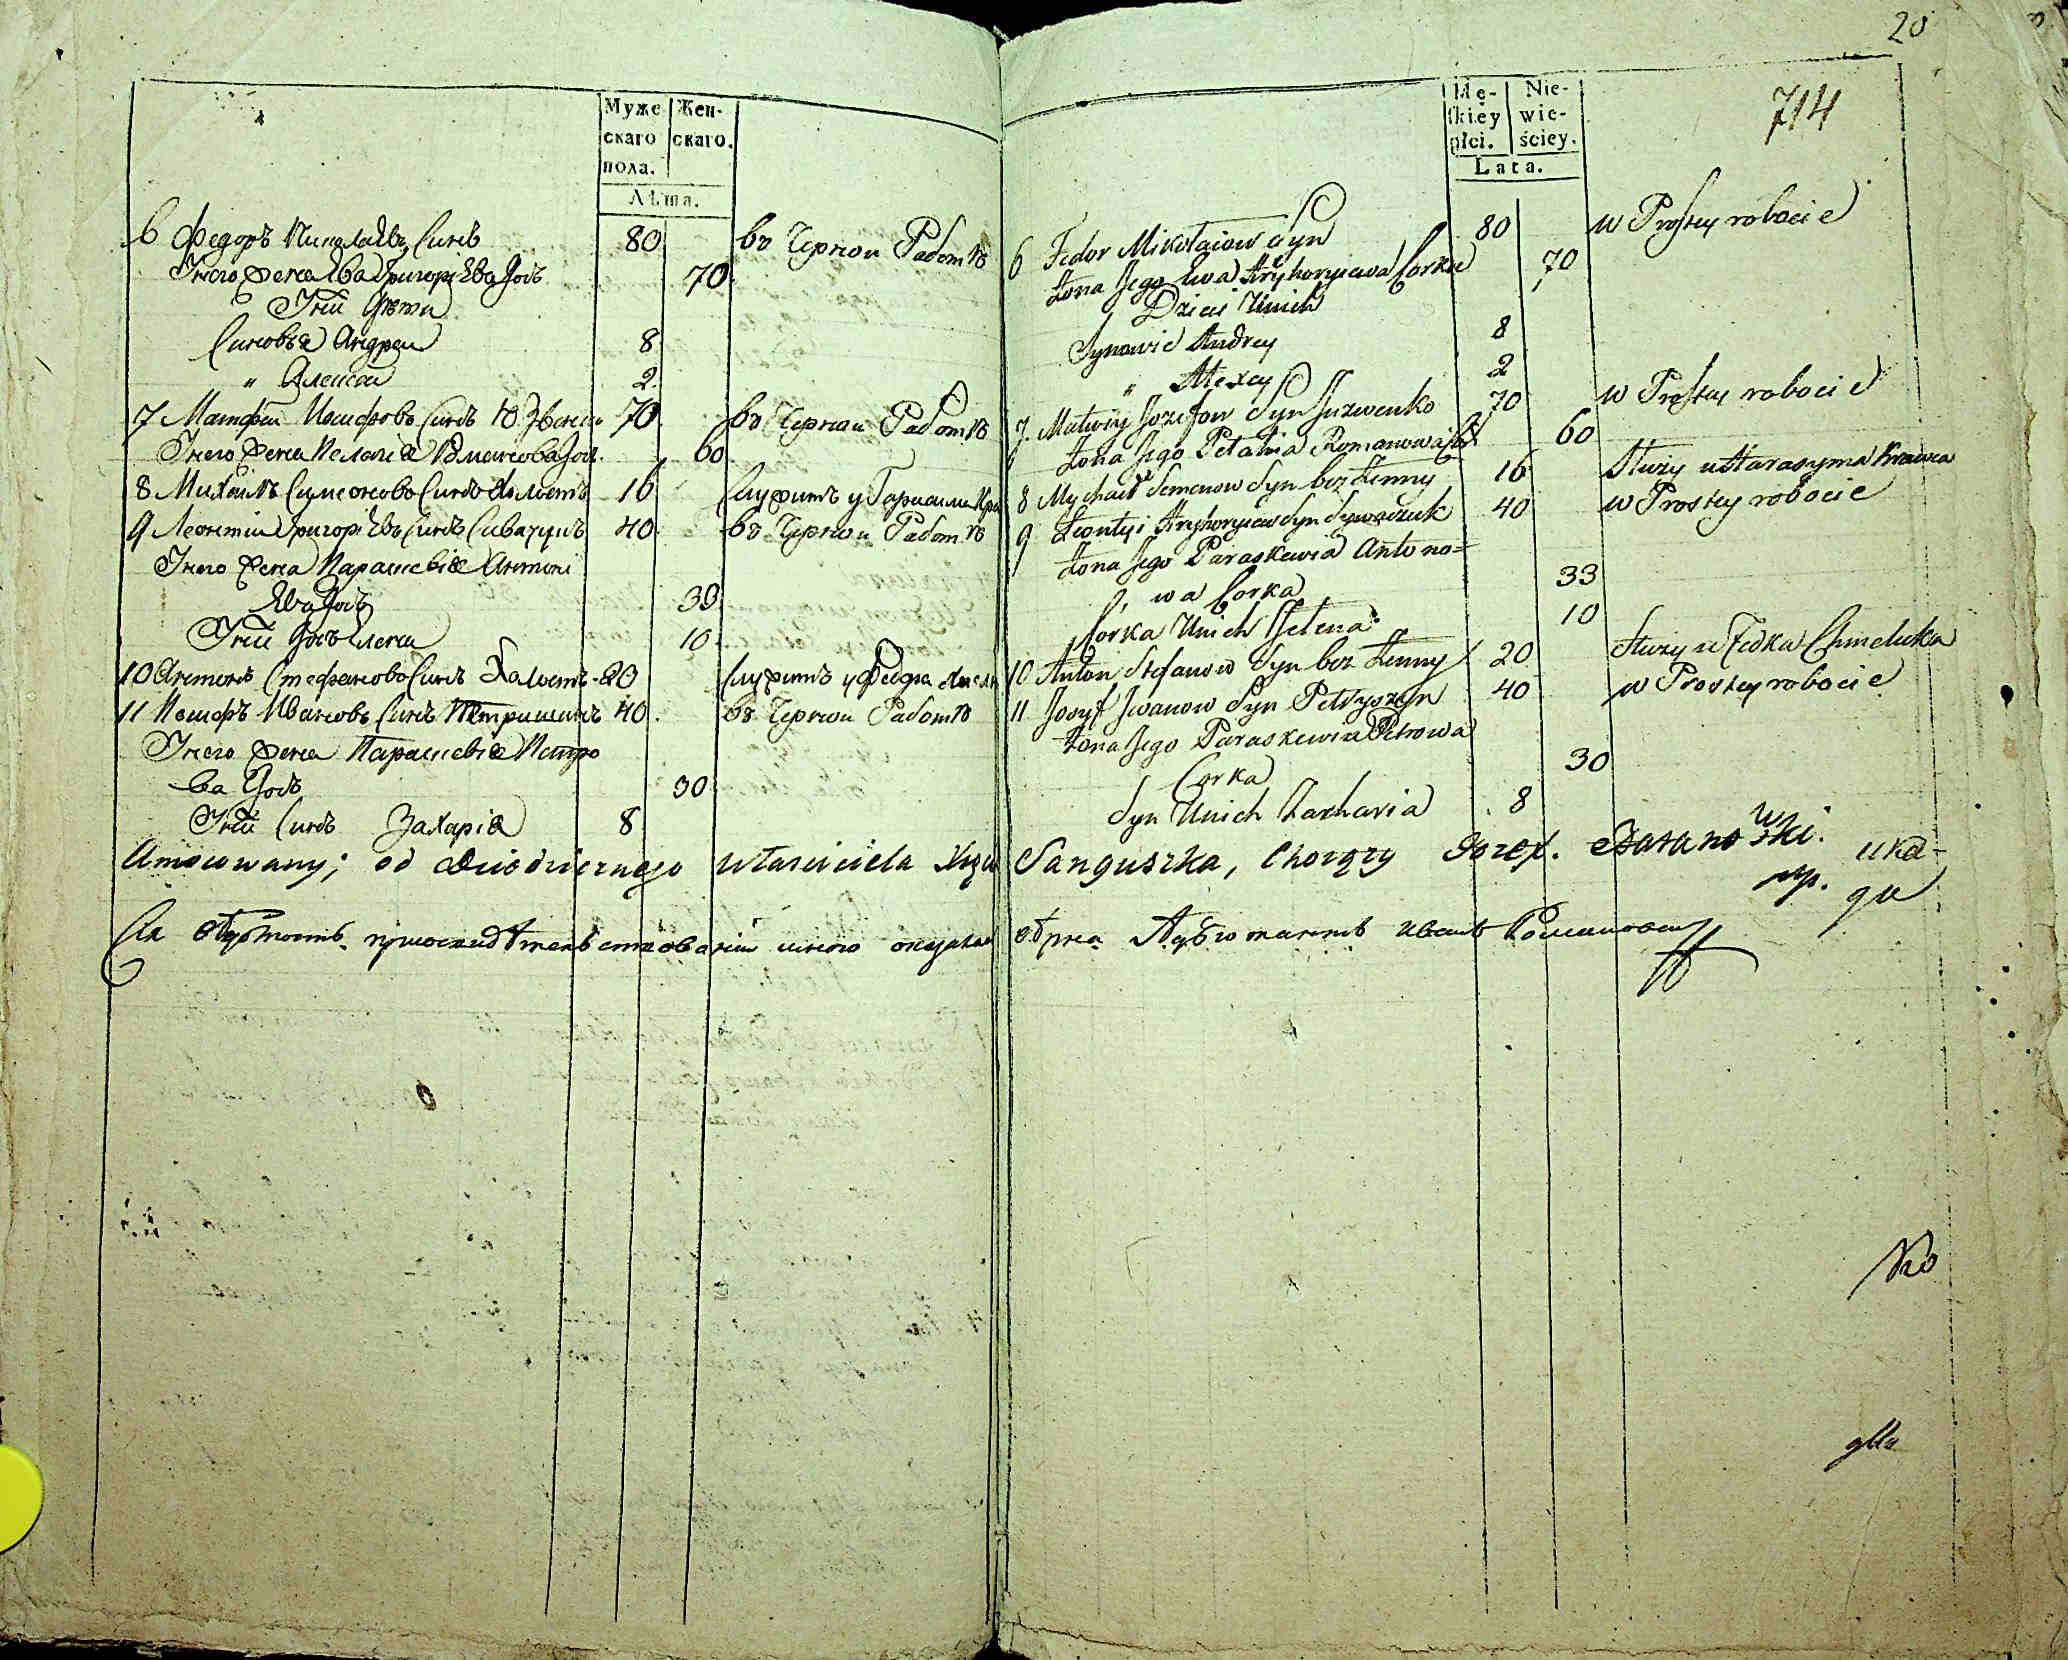 20
714
Муже
скаго
пола.
Жен-
скаго.
Лѣта.
6 Федоръ Николаевъ Синъ 80 въ Черной Работѣ
У него жена Ева Григоріева Дочь 70
У них Дѣти
Синовья Андрей 8
" Алексей 2
7 Матфей Иосифовъ Синъ 70 въ Черной Работѣ
У него жена Пелагія Романова Доч. 60
8 Михаилъ Симеоновъ Синъ Холостъ 16 Служитъ у Гарасима
9 Леонтій Григорієвъ Синъ Сивачукъ 40 въ Черной Работѣ
У него жена Параскевія Антоні
ева Дочъ 33
У них Дочъ Елена 10
10 Антонъ Стефановъ Синъ Холостъ 20 Служитъ у Федора
11 Иосифъ Ивановъ Синъ Петришинъ 40 въ Черной Работѣ
У него жена Параскевія Петро
ва Дочъ 30
У них Синъ Захарія 8
Mę-
skiey
płci.
Nie-
wie-
ściey.
Lata.
6 Fedor Mikołaiow Syn 80 w Prostey robocie
Żona Jego Ewa Hryhoryiewa Corka 70
Dzieci Unich
Synowie Andrey 8
" Alexey 2
7. Matwiy Jozefow Syn Juzwenko 70 w Prostey robocie
Żona Jego Pelahia Romanowa 60
8 Mychaił Semenow Syn bez Żenny 16 Służy u Harasyma Krawca
9 Leontyi Hryhoryiew Syn Sywaczuk 40 w Prostey robocie
Żona Jego Paraskewia Antono=
wa Corka 33
Corka Unich Helena 10
10 Anton Stefanow Syn bez Żenny 20 Służy u Fedka Chmeluka
11 Josyf Jwanow Syn Petryszyn 40 w Prostey robocie
Żona Jego Paraskewia Petrowa
Corka 30
Syn Unich Zacharia 8
Umocowany; od Dziedzicznego Właściciela Xięcia Sanguszka, Chorąży Jozef. Baranowski.